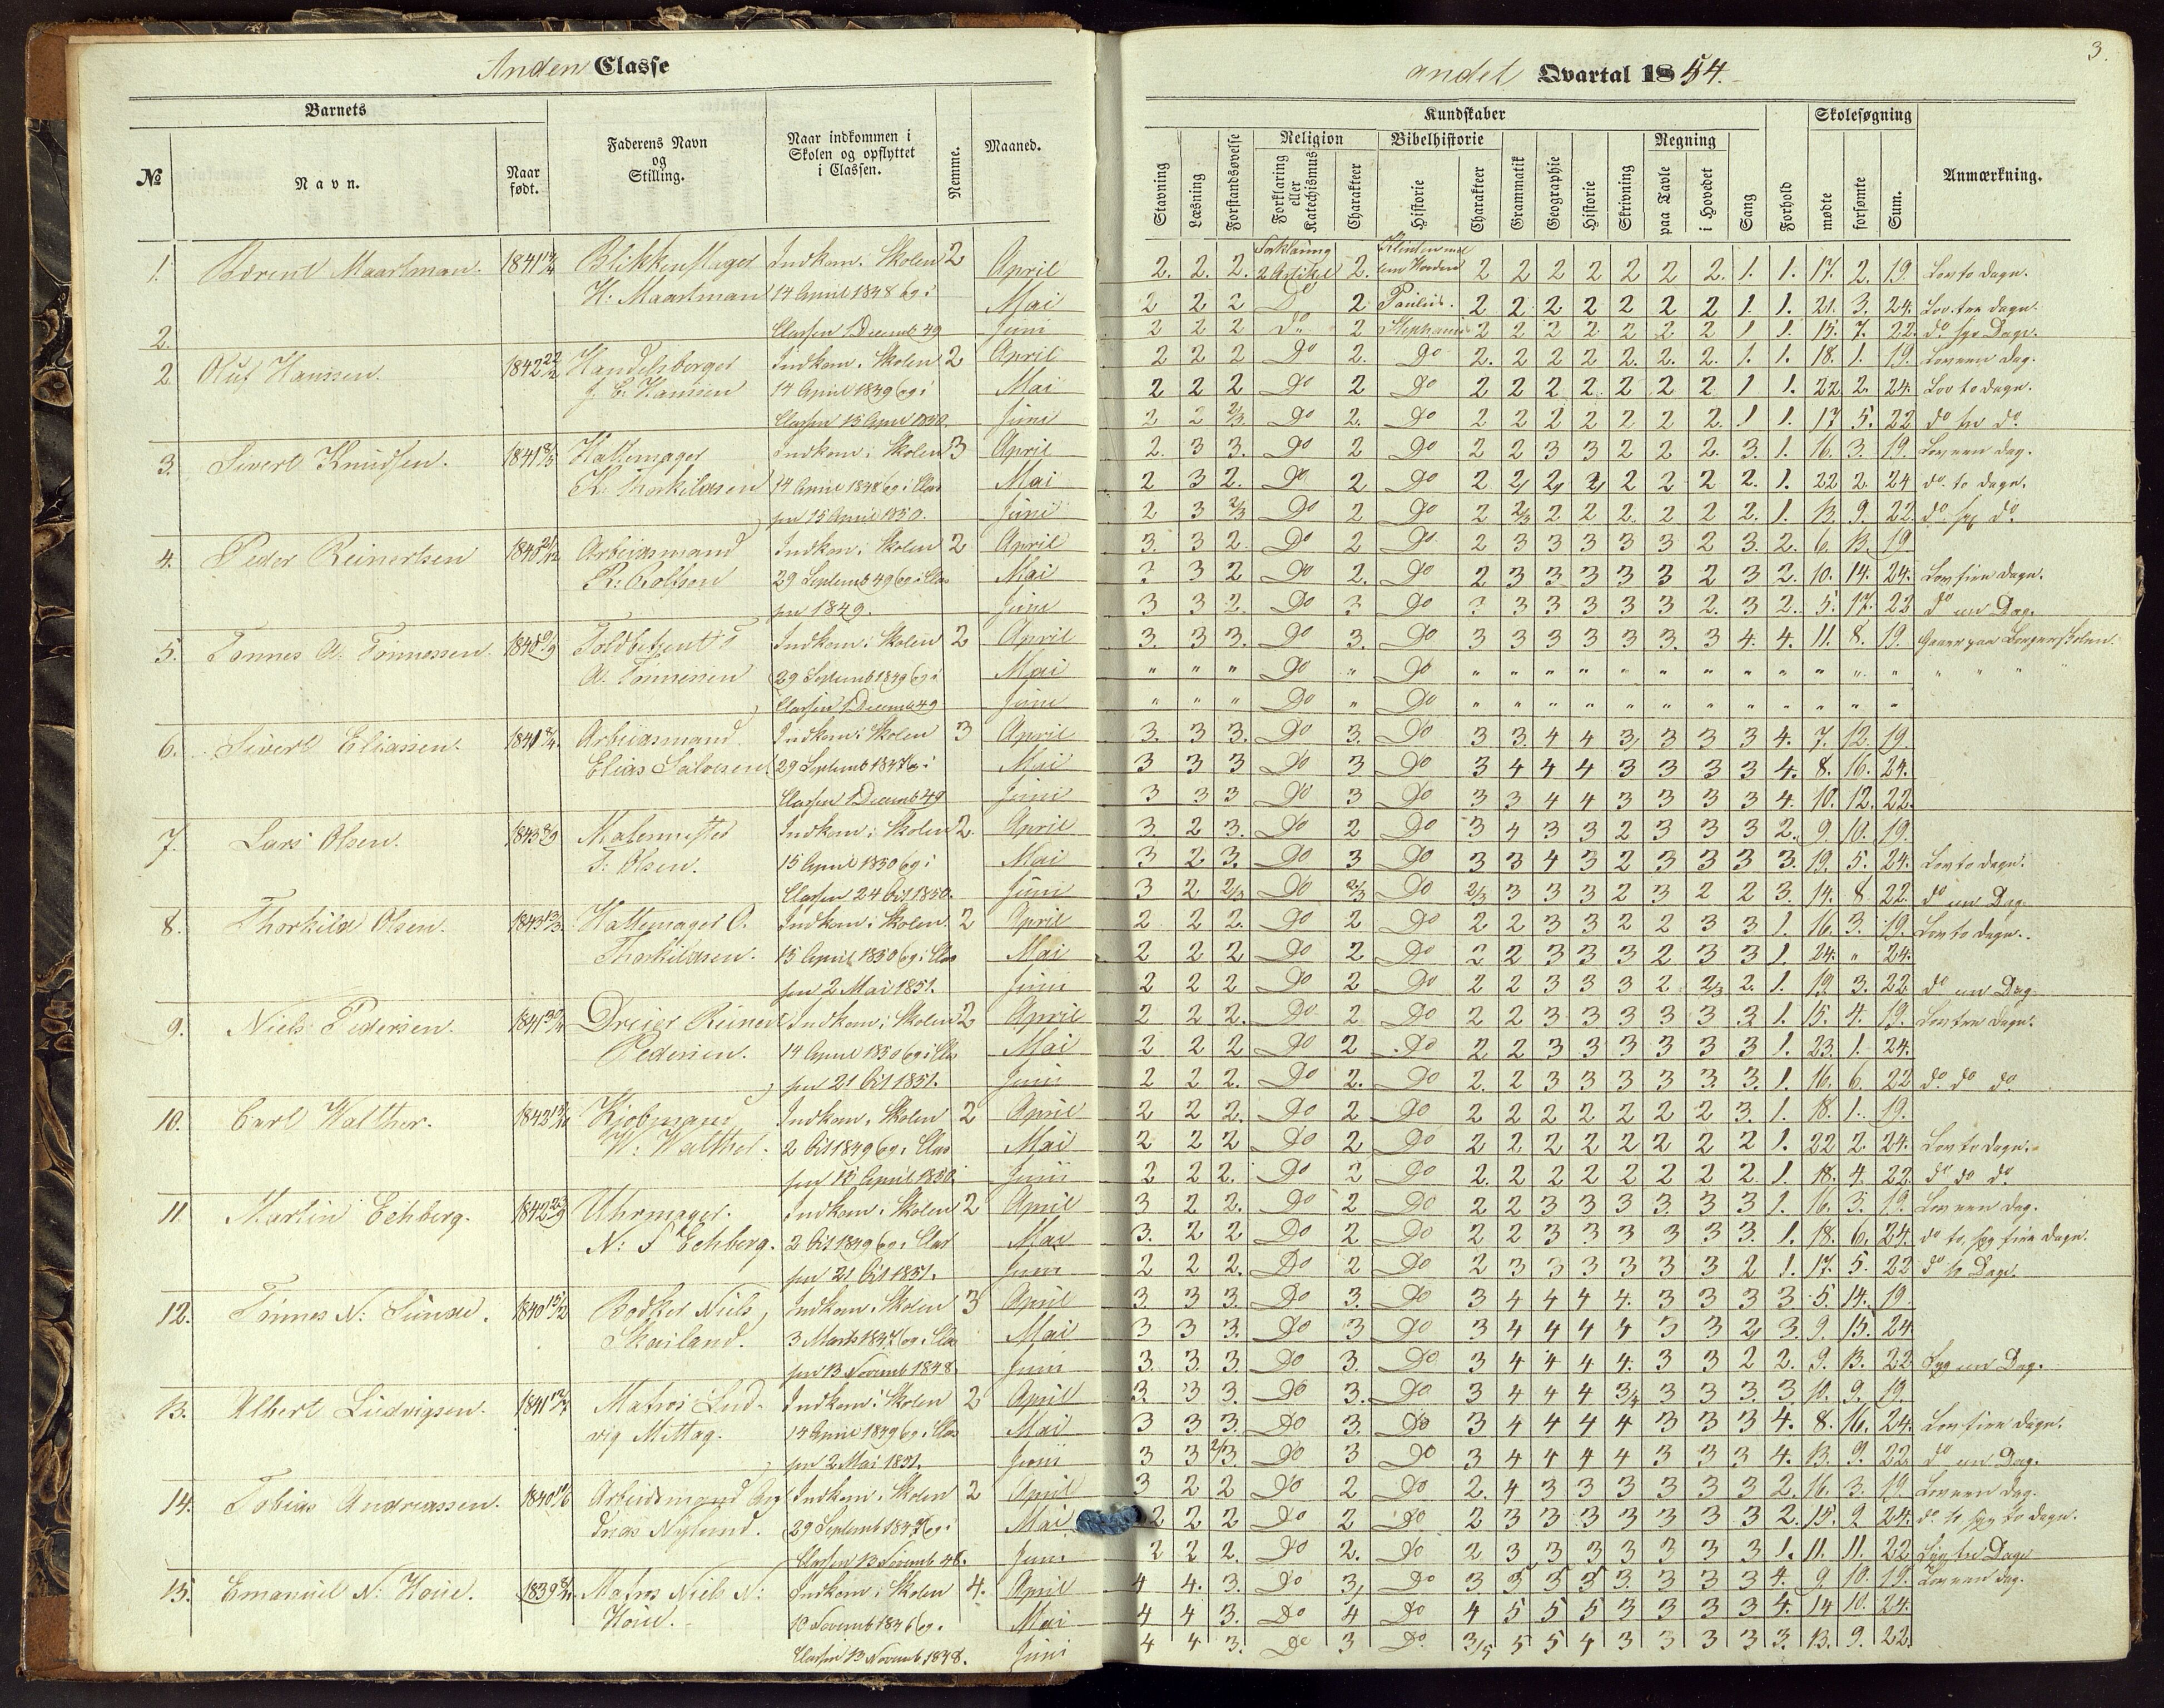 Anden Classe
Barnets
№
Navn.
Naar født.
Faderens Navn og Stilling.
Naar indkommen i Skolen og opflyttet i Classen.
Nemme.
Maaned.
1. Maartman. 1841 Blikkenslager Indkom i Skolen 2 April
H. Maartman 14 April 1848 og i Mai
Classen 1 Decemb 49 Juni
2.
2 Oluf Hanssen. 1842 Handelsborger Indkom i Skolen 2 April
J. C. Hanssen 14 April 1849 og i Mai
Classen 15 April 1850. Juni
3. Sivert Knudsen. 1841 Hattemager Indkom i Skolen 3 April
K. Thorkildsen 14 April 1848 og i Clas Mai
sen 15 April 1850. Juni
4. Peder Reinertsen 1840 Arbeidsmand Indkom i Skolen 2 April
R. Rolfson 29 Septemb 49 og i Clas Mai
sen 1849. Juni
5. Tønnes A. Tønnessen. 1840 Toldbetjent Indkom i Skolen 2 April
A. Tønnesen 29 Septemb 1849 og i Mai
Classen 1 Decemb 49 Juni
6. Sivert Eliassen. 1841 Arbeidsmand Indkom i Skolen 3 April
Elias Salvesen 29 Septemb 1847 og i Mai
Classen 1 Decemb 49 Juni
7. Lars Olsen. 1843 Malermester Indkom i Skolen 2. April
Olsen. 15 April 1850 og i Mai
Classen 24 Oct 1850. Juni
8. Thorkild Olsen. 1843 Hattemager O. Indkom i Skolen 2 April
Thorkildsen. 15 April 1850 og i Clas Mai
sen 2 Mai 1851. Juni
9. Niels Pedersen. 1841 Dreier Reinert Indkom i Skolen 2 April
Pedersen. 14 April 1850 og i Clas Mai
sen 21 Oct 1851. Juni
10. Carl Walther. 1842 Kjøbmand Indkom i Skolen 2 April
W. Walther. 2 Oct 1849 og i Clas Mai
sen 15 April 1850 Juni
11. Martin Echberg. 1842 Uhrmager. Indkom i Skolen 2 April
N. Echberg. 2 Oct 1849 og i Clas Mai
sen 21 Oct 1851. Juni
12. Tønnes N. Sunde. 1840 Bødker Niels Indkom i Skolen 3 April
Skailand. 3 Marts 1847 og i Clas Mai
sen 13 Novemb 1848. Juni
13. Albert Ludvigsen. 1841 Matros Lud- Indkom i Skolen 2 April
vig Mittag. 14 April 1849 og i Clas Mai
sen 2 Mai 1851. Juni
14. Tobias Andreassen. 1840 Arbeidsmand An Indkom i Skolen 2 April
dreas Nylund. 29 Septemb 1847 og i Mai
Classen 13 Novemb 48. Juni
15. Emanuel N. Houe. 1839 Matros Niels N: Indkom i Skolen 4. April
Houe. 10 Novemb 1846 og i Mai
Classen 13 Novemb 1848. Juni
3.
andet Qvartal 1854.
Kundskaber
Skolesøgning
Religion
Bibelhistorie
Regning
Stavning
Læsning
Forstandsøvelse
Forklaring eller Katechismus
Charakteer
Historie
Charakteer
Grammatik
Geographie
Historie
Skrivning
paa Tavle
i Hovedet
Sang
Forhold
mødte
forsømte
Sum.
Anmærkning.
Forklaring
2. 2. 2. 2 Artikel 2. 2 2 2 2 2 2 2. 1. 1. 17. 2. 19. Lov to Dage.
2 2 2 Do 2 Paulus. 2 2 2 2 2 2 2 1. 1. 21. 3. 24. Lov tre Dage.
2 2 2 Do 2 Stephanus 2 2 2 2 2 2 2 1 1. 15. 7. 22. do syg Dage.
2 2 2 Do 2. Do 2. 2 2 2 2. 2. 2. 1. 1. 18. 1. 19. Lov een Dag.
2 2 2 Do 2 Do 2 2 2 2 2 2 2 1 1. 22 2. 24. Lov to Dage.
2 2 2/3 Do 2. Do 2 2 2 2 2 2 2. 1 1. 17 5. 22 do to do
2. 3 3. Do 2 Do 2 2 3 3 2 2 2. 3. 1. 16. 3. 19. Lov een Dag.
2 3 2. Do 2 Do 2 2 2 2 2 2 2 2. 1. 22 2. 24 do to Dage.
2 3 2/3 Do 2 Do 2 2/3 2 2 2 2 2 2. 1. 13. 9. 22. do syg do.
3. 3 2. Do 2 Do 2 3 3 3 3 3 2 3. 2. 6. 13. 19.
3 3 2 Do 2. Do 2 3 3 3 3 3 2 3 2. 10. 14. 24. Lov fire Dage.
3 3 2. Do 3 Do 3 3 3 3 3 3 2. 3 2. 5. 17. 22 do en Dag.
3. 3 3. Do 3. Do 3 3 3 3 3 3. 3 4. 4. 11. 8. 19. Gaaer paa Borgerskolen.
" " " Do " Do " " " " " " " " " " " " " " "
" " " Do " Do " " " " " " " " " " " "
3. 3 3. Do 3. Do 3 3. 4 4 3 3 3 3 4. 7. 12. 19.
3 3 3 Do 3 Do 3 4 4 4 3 3 3 3 4. 8. 16. 24.
3 3 3 Do 3 Do 3 3 4 4 3 3 3 3 4. 10. 12. 22.
3 2 3. Do 2 Do 3 4 3 3 2 3 3 3 2. 9. 10. 19.
3 2 3. Do 3 Do 3 3 4 3 2 3 3 3 3. 19. 5. 24. Lov to Dage.
3 2 2/3 Do 2/3 Do 2/3 3 3 3 2 3 2 2 3. 14. 8 22. do en Dag.
2 2 2. Do 2 Do 2 2 3 3 2 2 3 3 1. 16. 3. 19. Lov to Dage.
2 2 2 Do 2 Do 2 2 3 3 3 2 3 3 1. 24. " 24.
2 2 2 Do 2 Do 2 2 3 3 3 2 2/3 2. 1. 19 3. 22. do en Dag.
2 2 2. Do 2 Do 2 2 3 3 3 3 3 3 1. 15. 4. 19. Lov tre Dage.
2 2 2 Do 2 Do 2 2 3 3 3 3 3 3 1. 23. 1. 24.
2 2 2. Do 2. Do 2. 2 3 3 3 3 3. 3. 1. 16. 6. 22 do do do
2 2 2. Do 2 Do 2 2 2 2 2 2 2 3. 1. 18. 1. 19.
2 2 2 Do 2 Do 2 2 2 2 2 2 2 2 1. 22 2. 24. Lov to Dage.
2 2 2. Do 2 Do 2. 2 2 2 2 2 2 2. 1. 18. 4. 22. do do do.
3 2 2. Do 2 Do 2 2 3 3 3 3. 3 3 1. 16. 3. 19. Lov een Dag.
3. 2 2 Do 2 Do 2 2 3 3 3 3 3 3. 1. 18. 6. 24. do to, syg fire Dage.
2 2 2. Do 2 Do 2 3 3 3 3 3 3 2 1. 17. 5. 22 do to Dage.
3. 3 3. Do 3. Do 3 4 4 4 4. 3 3 3 3. 5. 14. 19.
3 3 3. Do 3 Do 3 4 4 4 4 3 3 2 3. 9. 15. 24
3. 3. 3. Do 3. Do 3 4 4 4 4. 3 3 2 2. 9. 13. 22 Syg en Dag.
3. 3 3. Do 3. Do 3 4 4 4 3/4 3 3 3. 3 10. 9. 19.
3 3 3. Do 3. Do 3 4 4 4 4 3 3 3 4. 8. 16. 24. Lov fire Dage.
3 3 2/3. Do 3 Do 3 4 4 4 4 3 3 3 4. 13. 9. 22 do en Dag.
3 2 2 Do 2 Do 2. 4 3 3 3 3 3 3 2. 16. 3. 19. Lov een Dag.
2 2 2 Do 2 Do 2 3 3 3 3 3 3 3 2. 15. 9 24. do to syg to Dage.
2 2 2. Do 2. Do 2 3 3 3 3 3 3 3 1. 11. 11. 22 Syg tre Dage
4 4. 3. Do 3 Do 3 5 5 5 3. 3 3 3 4. 9. 10. 19. Lov een Dag.
4 4 3. Do 4 Do 4 5 5 5 3 3 3 3 4. 14 10. 24.
4 4 3. Do 3 Do 3/5 5 5 4 3 3 3 3 3. 13. 9. 22.